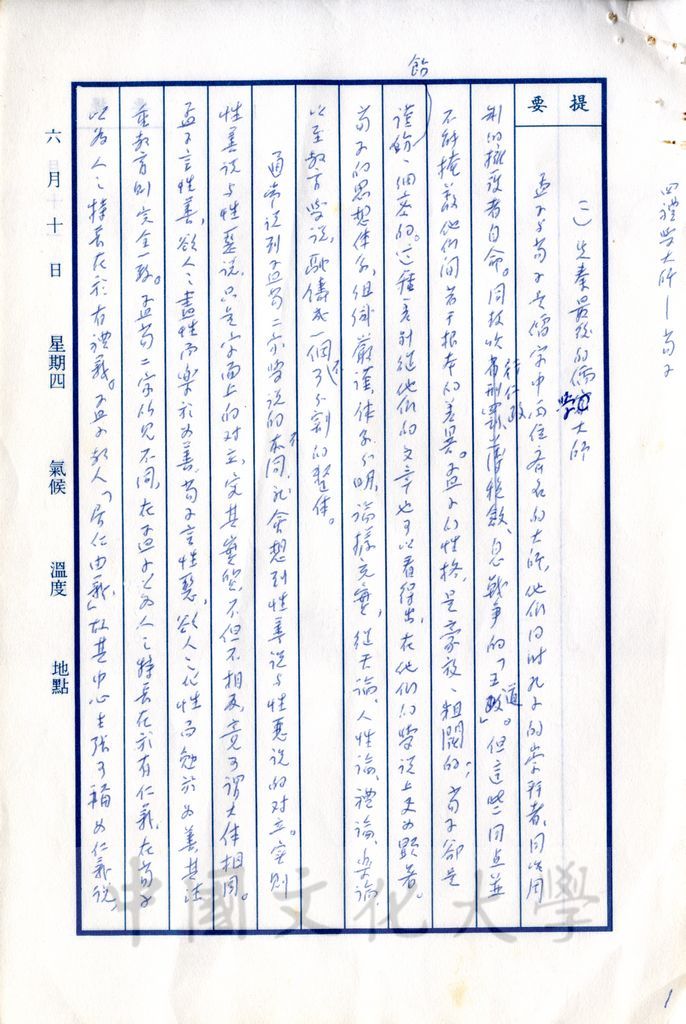 四禮學大師—荀子
提要
(一)先秦最後的儒學大師
孟子与荀子是儒家中兩位齊名的大師,他們同时孔子的崇拜者,同以周
制的擁護者自命。同鼓吹待仁政省刑罰、薄稅斂、息戰爭的「王道」。但這些同点並
不能掩蓋他們间若干根本的差異。孟子的性格,是豪放、粗闊的;荀子卻是
謹飭、細密的。這種差別從他們的文章也可以看得出,在他們的學說上更為顯著。
飭
荀子的思想体系,組織嚴謹,体系分明,論據充實,從天論、人性論、禮論、樂論,
以至教育學說,馳儔成一個不可分割的整体。
通常說到孟荀二家學說的不同,就會想到性善說与性惡說的对立。实則
性善說与性惡說,只是字面上的对立,究其實質,不但不相反,竟可謂大体相同。
孟子言性善,欲人之盡性而樂於為善,荀子言性惡,欲人之化性而勉於為善,其注
重教育則完全一致。孟荀二家所見不同,在孟子以為人之特長在於有仁義,在荀子
以為人之特長在於有禮義。孟子教人「居仁由義」故其中心主張可稱为仁義說,
六月十日 星期四 氣候 溫度 地點
中國文化大學
1